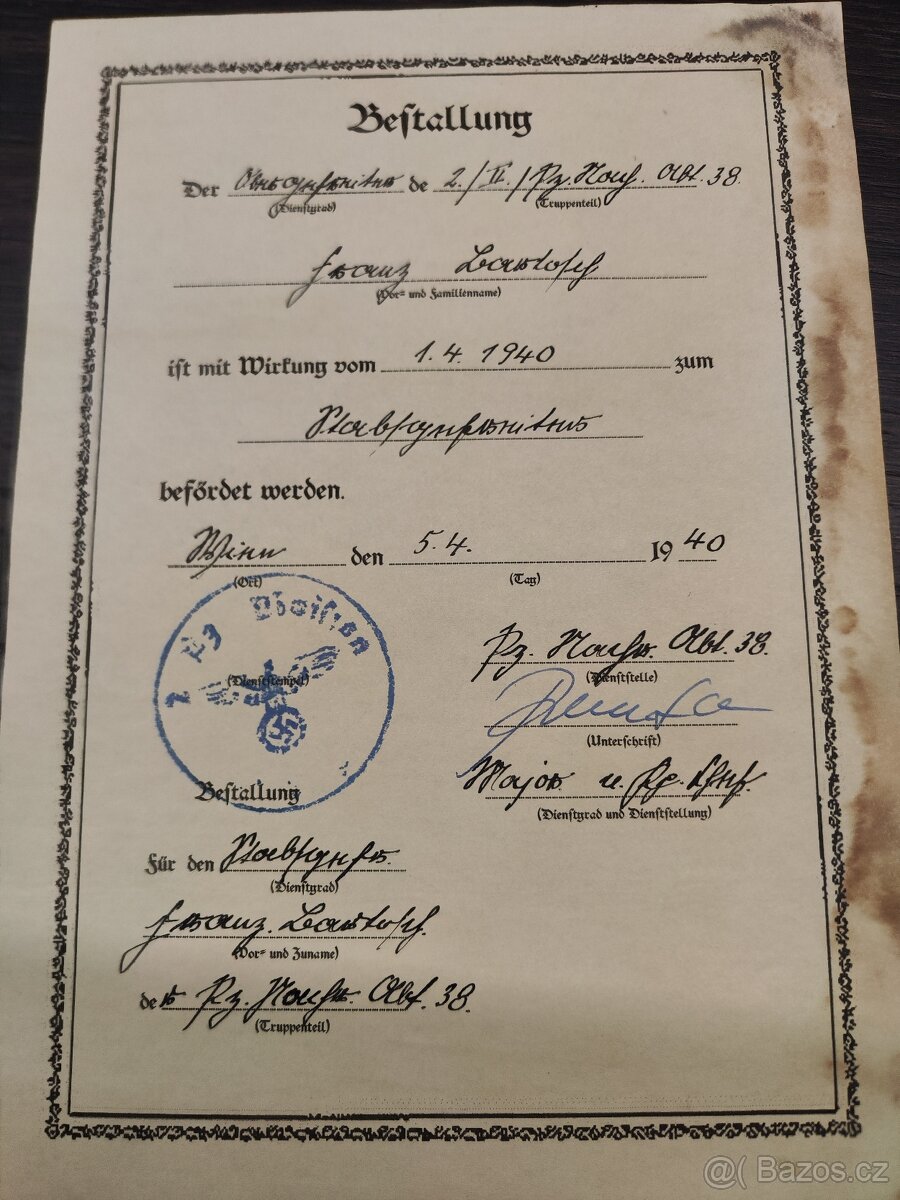 Bestallung
Der Obergefreiter de 2./IV./Pz. Nach. Abt. 38.
(Dienstgrad) (Truppenteil)
Franz Bartosch
(Vor= und Familienname)
ist mit Wirkung vom 1.4.1940 zum
Stabsgefreiten
befördet werden.
Wien den 5.4. 1940
(Ort) (Tag)
2 Pz Division
(Dienststempel)
Pz. Nachr. Abt. 38.
(Dienststelle)
(Unterschrift)
Major u.
(Dienstgrad und Dienststellung)
Bestallung
Für den Stabsgefr.
(Dienstgrad)
Franz. Bartosch.
(Vor= und Zuname)
der Pz. Nachr. Abt. 38.
(Truppenteil)
@( Bazos.cz